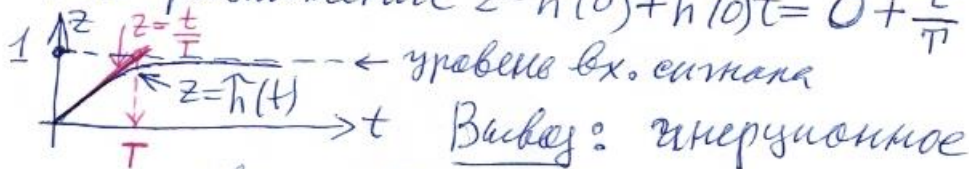 z = h(0) + h'(0)t = 0 + t/T
1 z z = t/T
← уровень вх. сигнала
z = h(t)
t Вывод: инерционное
T